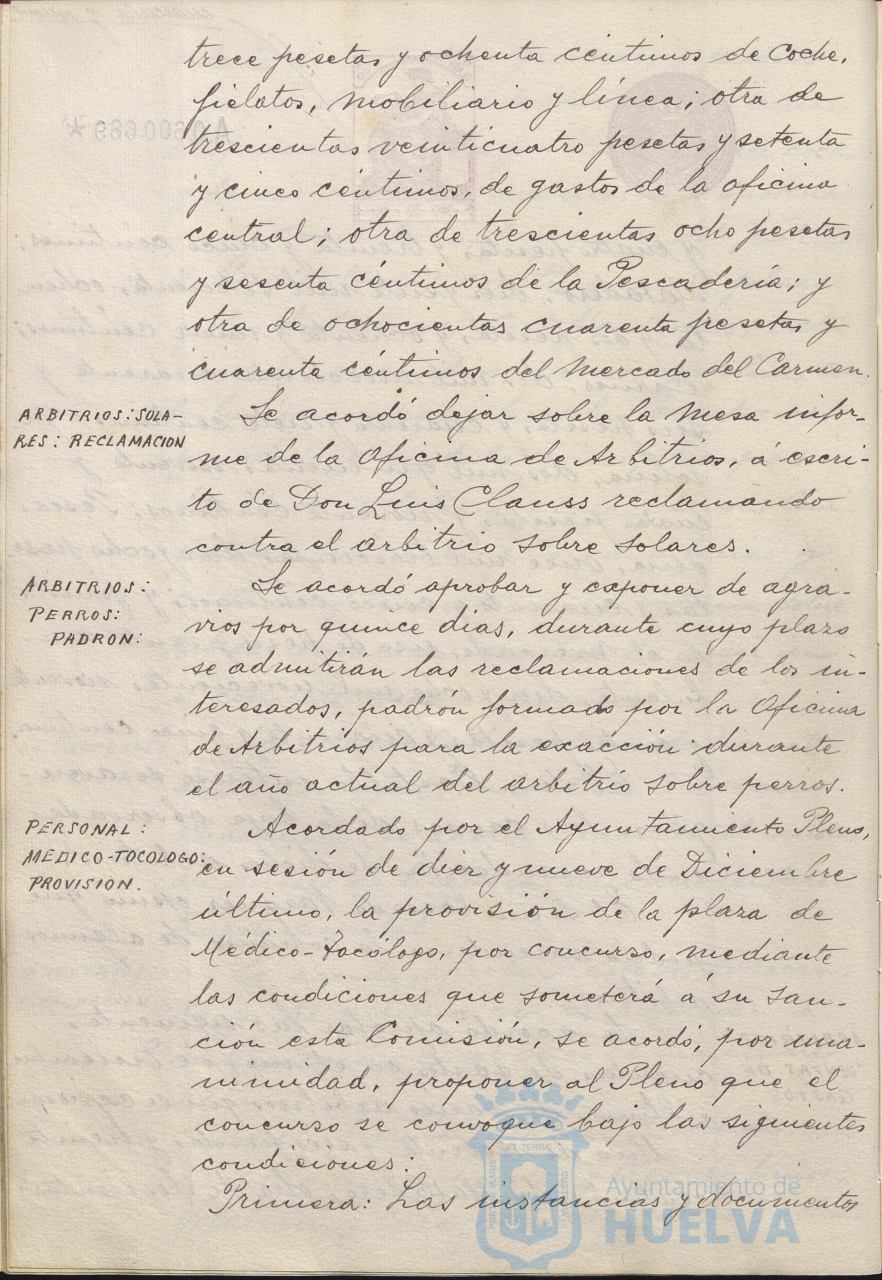 trece pesetas y ochenta céntimos de coche,
fielatos, mobiliario y línea; otra de
trescientas veinticuatro pesetas y setenta
y cinco céntimos, de gastos de la oficina
central; otra de trescientas ocho pesetas
y sesenta céntimos de la Pescadería; y
otra de ochocientas cuarenta pesetas y
cuarenta céntimos del Mercado del Carmen.
ARBITRIOS: SOLA-
RES: RECLAMACION
Se acordó dejar sobre la Mesa infor-
me de la Oficina de Arbitrios, á escri-
to de Don Luis Clauss reclamando
contra el arbitrio sobre solares.
ARBITRIOS:
PERROS:
PADRON:
Se acordó aprobar y exponer de agra-
vios por quince dias, durante cuyo plazo
se admitirán las reclamaciones de los in-
teresados, padrón formado por la Oficina
de Arbitrios para la exacción durante
el año actual del arbitrio sobre perros.
PERSONAL:
MEDICO-TOCOLOGO:
PROVISION.
Acordado por el Ayuntamiento Pleno,
en sesión de diez y nueve de Diciembre
último, la provisión de la plaza de
Médico-Tocólogo, por concurso, mediante
las condiciones que someterá á su san-
ción esta Comisión, se acordó, por una-
nimidad, proponer al Pleno que el
concurso se convoque bajo las siguientes
condiciones:
Primera: Las instancias y documentos
Ayuntamiento de
HUELVA